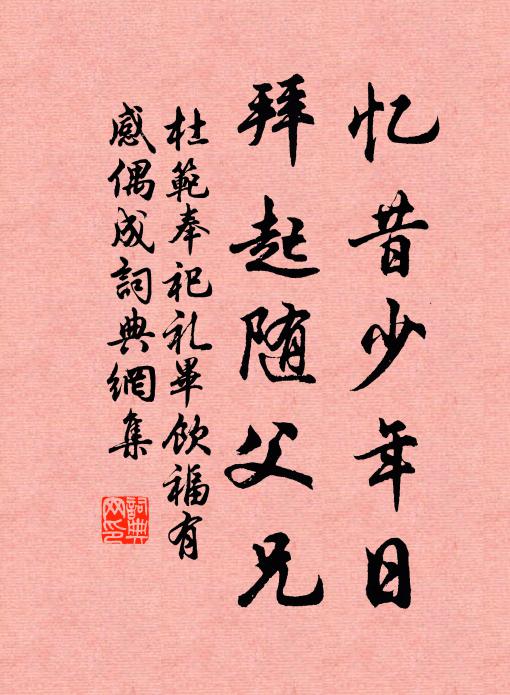 忆昔少年日
拜起随父兄
杜範奉祀礼畢飲福有
感偶成詞典網集
詞典
网印